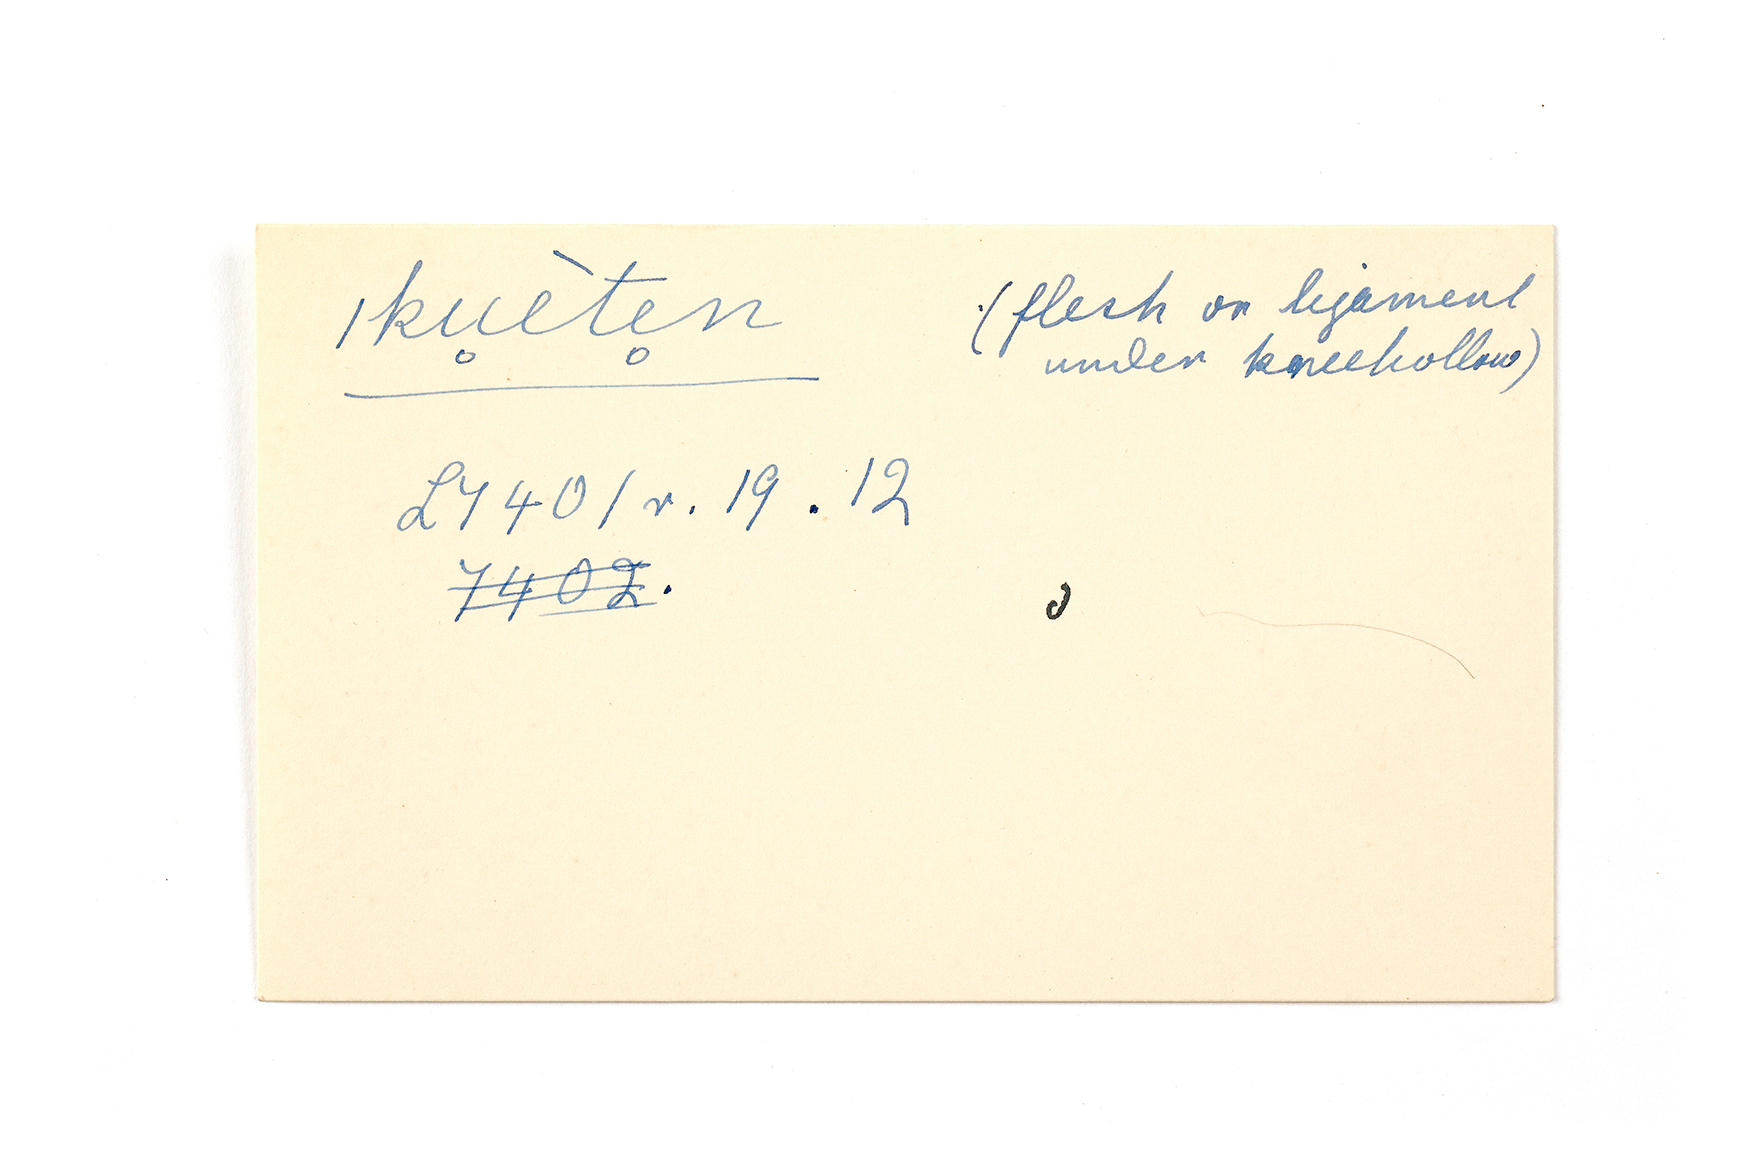 |ku̥ète̥n
(flesh or ligament
under kneehollow)
L7401 r. 19 . 12
7402.